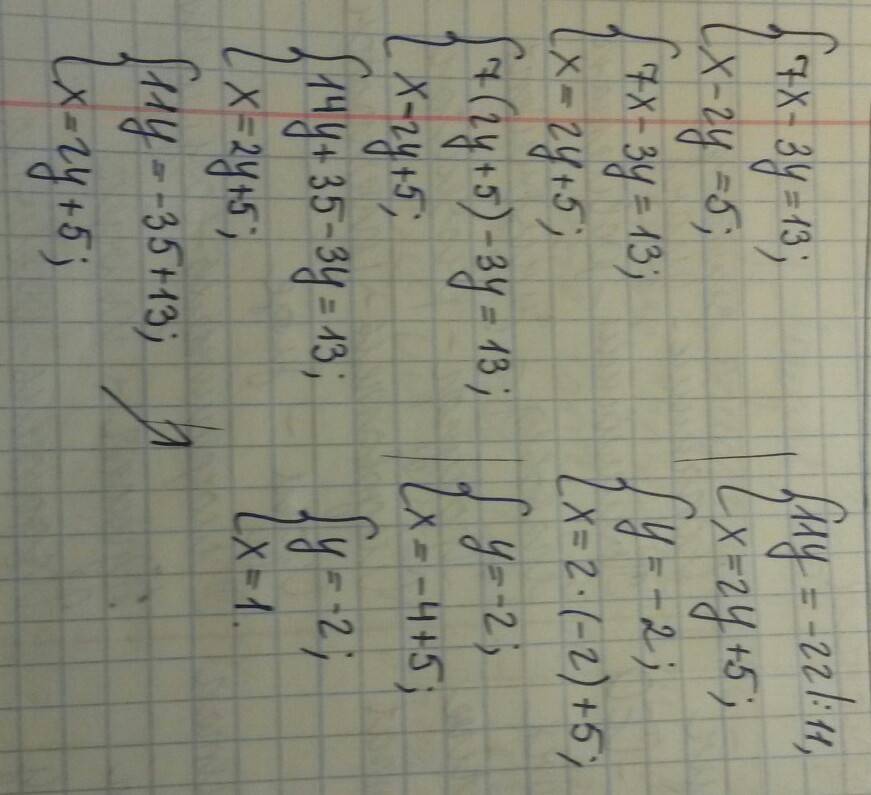 7x - 3y = 13;
x - 2y = 5;
7x - 3y = 13;
x = 2y + 5;
7(2y + 5) - 3y = 13;
x = 2y + 5;
14y + 35 - 3y = 13;
x = 2y + 5;
11y = -35 + 13;
x = 2y + 5;
11y = -22 |: 11;
x = 2y + 5;
y = -2;
x = 2 · (-2) + 5;
y = -2;
x = -4 + 5;
y = -2;
x = 1.